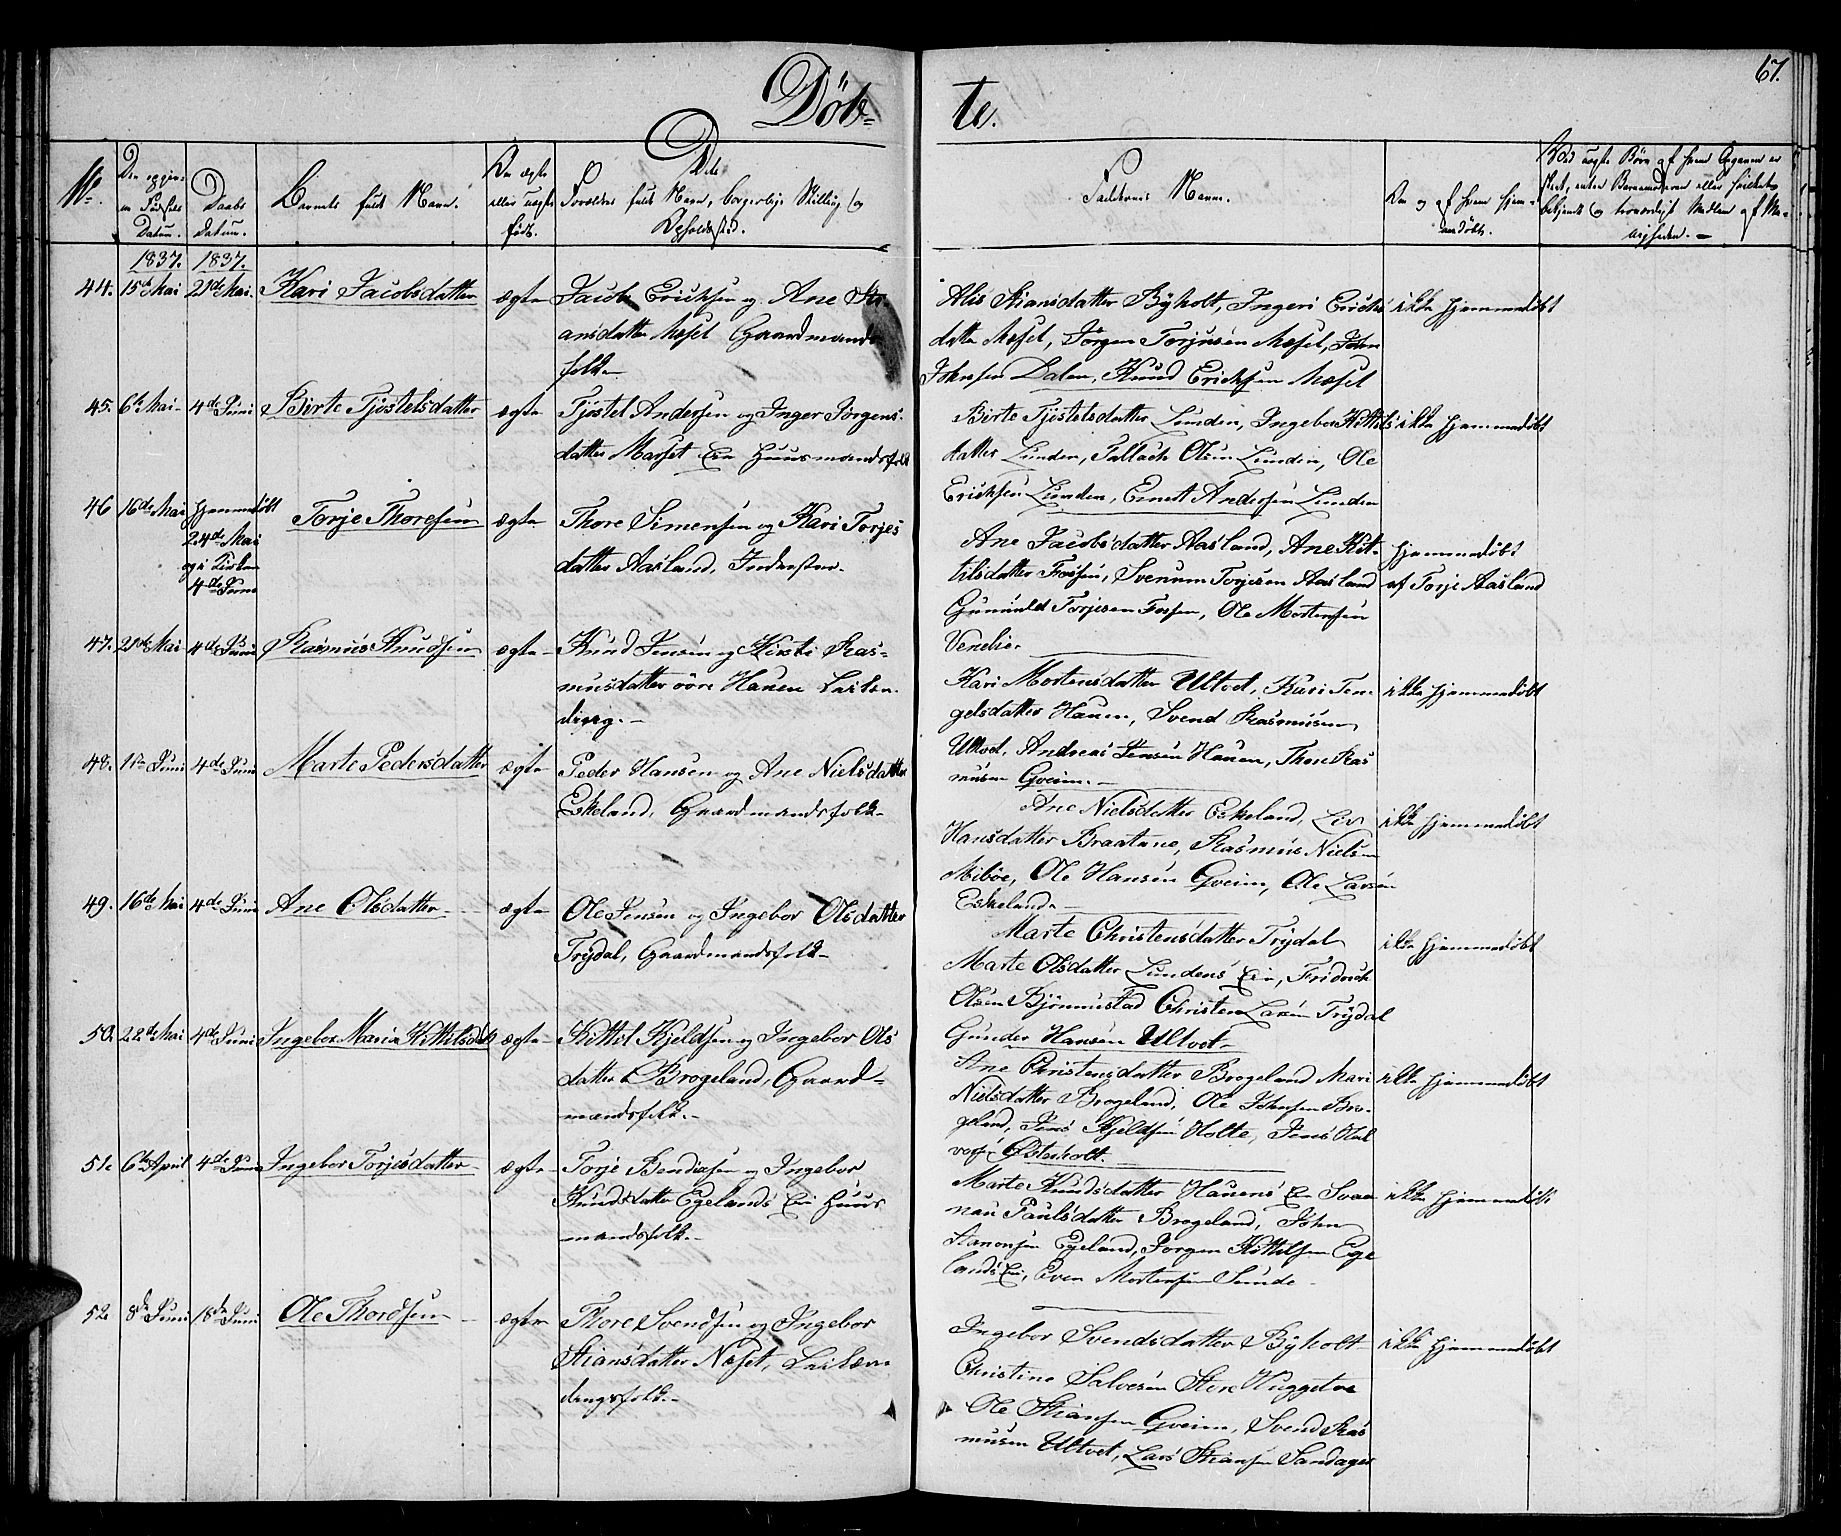 67.
Döb-
te.
No.
Den opgiv-
ne Fødsels
Datum.
Daabs
Datum.
Barnets fulde Navn.
Om ægte
eller uægte
født.
De
Forældres fulde Navn, borgerlige Stilling og
Opholdssted.
Faddernes Navne.
Om og af hvem hjem-
medøbt.
1837. 1837.
44. 15de Mai 21de Mai. Kari Jacobsdatter ægte Jacob Erichsen og Ane Sti-
ansdatter Mæsel Gaardmands-
folk
Alis Stiansdatter Byholt, Ingeri Erichs
datter Mæsel, Jörgen Torjusen Mæsel, John
Johnsen Dalen, Knud Erichsen Mæsel
ikke hjemmedøbt
45. 6te Mai 4de Juni Birte Tjöstelsdatter ægte Tjöstel Andersen og Inger Jörgens-
datter Marset Eie Huusmandsfolk
Birte Tjöstelsdatter Lunden, Ingebor Kittils
datter Lunden, Tallach Olsen Lunden, Ole
Erichsen Lunden, Ernst Andersen Lunden
ikke hjemmedøbt
46 16de Mai Hjemmedøbt
24de Mai
og i Kirken
4de Juni
Torje Thoresen ægte Thore Simensen og Kari Torjes
datter Aasland, Inderster.
Ane Jacobsdatter Aasland, Ane Kit-
tilsdatter Fossen, Svenum Torjesen Aasland
Gunuld Torjesen Fossen, Ole Mortensen
Venelie.
hjemmedøbt
af Torje Aasland
47. 21de Mai 4de Juni Rasmus Knudsen ægte Knud Jensen og Kirsti Ras-
musdatter övre Hauen
Kari Mortensdatter Ultvet, Kari Ten-
gelsdatter Hauen, Svend Rasmusen
Ultvet, Andreas Jensen Hauen, Thor Ras
musen Gveim.
ikke hjemmedøbt
48. 1te Juni 4de Juni Marte Pedersdatter ægte Peder Hansen og Ane Nielsdatter
Eskeland, Gaardmandsfolk
Ane Nielsdatter Eskeland, Liv
Hansdatter Braatane, Rasmus Nielsen
Miböe, Ole Hansen Gveim, Ole Larsen
Eskeland
ikke hjemmedøbt
49. 16de Mai 4de Juni Ane Olsdatter ægte Ole Jensen og Ingebor Olsdatter
Trydal, Gaardmandsfolk
Marte Christensdatter Trydal
Marte Olsdatter Lundens Eie, Fridrich
Olsen Björnmistad Christen Larsen Trydal
Gunder Hansen Ultvet
ikke hjemmedøbt
50. 22de Mai 4de Juni Ingebor Maria Kittilsdatt ægte Kittil Kjeldsen og Ingebor Ols
datter Brogeland, Gaard-
mandsfolk.
Ane Christensdatter Brogeland Mari
Nielsdatter Brogeland, Ole Johnsen Bro-
geland, Jens Kjeldsen Holte, Jens Hal
vors Österholt.
ikke hjemmedøbt
51. 6te April 4de Juni Ingebor Torjesdatter ægte Torje Bendixsen og Ingebor
Knudsdatter Egelands Eie Huus
mandsfolk.
Marte Knudsdatter Hauens Eie Svaa
nau Paulsdatter Brogeland, John
Aanonsen Egeland, Jörgen Kittilsen Ege
lands Eie, Even Mortensen Sunde
ikke hjemmedøbt
52 8de Juni 18de Juni Ole Thordsen ægte Thore Svendsen og Ingebor
Stiansdatter Næset,
Ingebor Svendsdatter Byholt
Christine Salvesen Store Hugget
Ole Stiansen Gveim, Svend Ras
musen Ultvet, Lars Stiansen Sandager
ikke hjemmedøbt